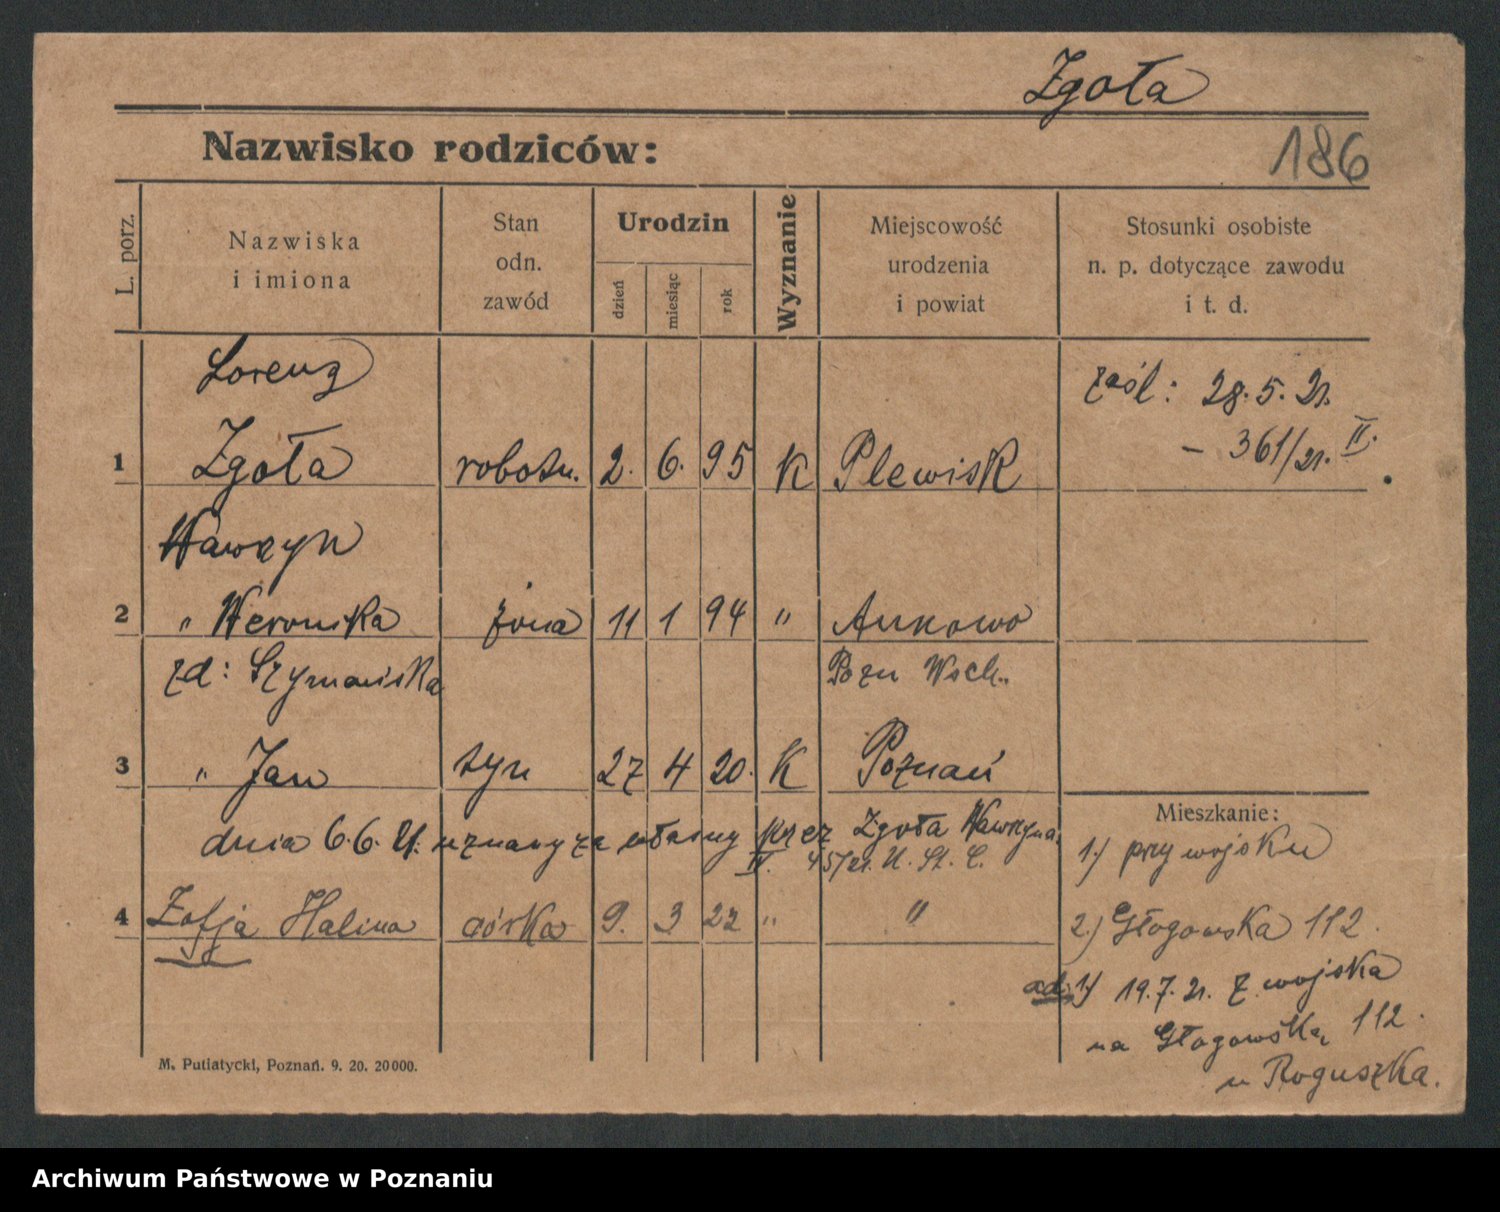 Zgoła
Nazwisko rodziców:
186
L. porz.
Nazwiska
i imiona
Stan
odn.
zawód
Urodzin
dzień
miesiąc
rok
Wyznanie
Miejscowość
urodzenia
i powiat
Stosunki osobiste
n. p. dotyczące zawodu
i t. d.
Lorenz
1 Zgoła robotn. 2. 6. 95 K Plewisk
28. 5. 21.
– 361/21. II.
Wawrzyn
2 " Weronika żona 11 1 94 " Annowo
zd: Szymańska Pozn Wsch.
3 " Jan syn 27 4 20. K Poznań
dnia 6. 6. 21. uznany za własny przez Zgoła Wawrzyna.
II. 457/21. U. St. C.
4 Zofja Halina córka 9. 3 22 " "
Mieszkanie:
1.) przy wojsku
2.) Głogowska 112.
ad. 1) 19. 7. 21. z wojska
na Głogowską 112.
u Roguszka.
M. Putiatycki, Poznań. 9. 20. 20000.
Archiwum Państwowe w Poznaniu